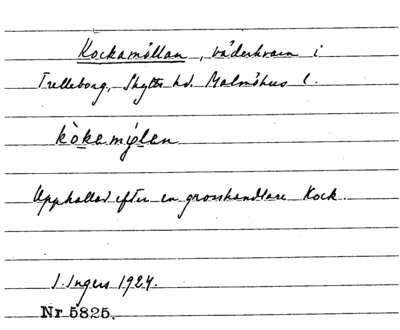 Kockamöllan, väderkvarn i
Trelleborg, Skytts hd. Malmöhus l.
kòkamỳlan
Uppkallad efter en grosshandlare Kock.
I. Ingers 1924.
Nr 5825.